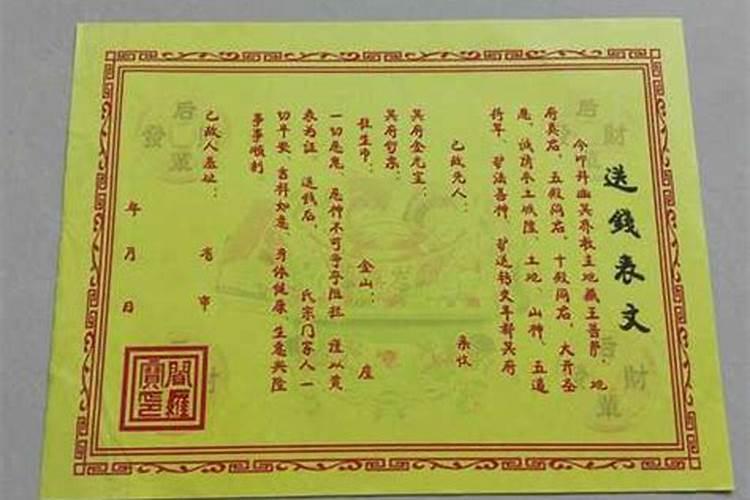 送錢表文
今叩拜幽冥界教主地藏王菩萨、地
府真君、五殿阎君、十殿阎君、大齐圣
恳诚请本土城隍、土地、山神、五道
将军、护法善神、护送钱文车都冥府
已故先人： 亲收
冥府金元宝：
冥府哲东： 金山： 座
往生币：
一切恶鬼、恶神不可争夺阻拦，谨以黄
表为证，送钱后， 氏宗门家人一
切平安、吉祥如意、身体健康、生意兴隆
事事顺利
已故人居址： 省 市
年 月 日
閻羅寶印
后財發單
后財發單
后財單
財